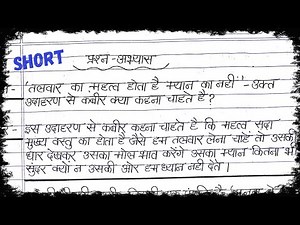 SHORT
प्रश्न-अभ्यास
'तलवार का महत्व होता है म्यान का नहीं'- उक्त
उदाहरण से कबीर क्या कहना चाहते है ?
इस उदाहरण से कबीर कहना चाहते है कि महत्व सदा
मुख्य वस्तु का होता है जैसे हम तलवार लेना चाहें तो उसकी
धार देखकर उसका मोल भाव करेंगे उसका म्यान कितना भी
सुंदर क्यों न उसकी ओर हम ध्यान नही देते ।